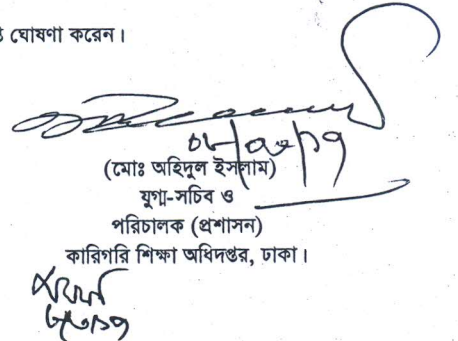 ঘোষণা করেন।
০৮/০৩/১৭
(মোঃ অহিদুল ইসলাম)
যুগ্ম-সচিব ও
পরিচালক (প্রশাসন)
কারিগরি শিক্ষা অধিদপ্তর, ঢাকা।